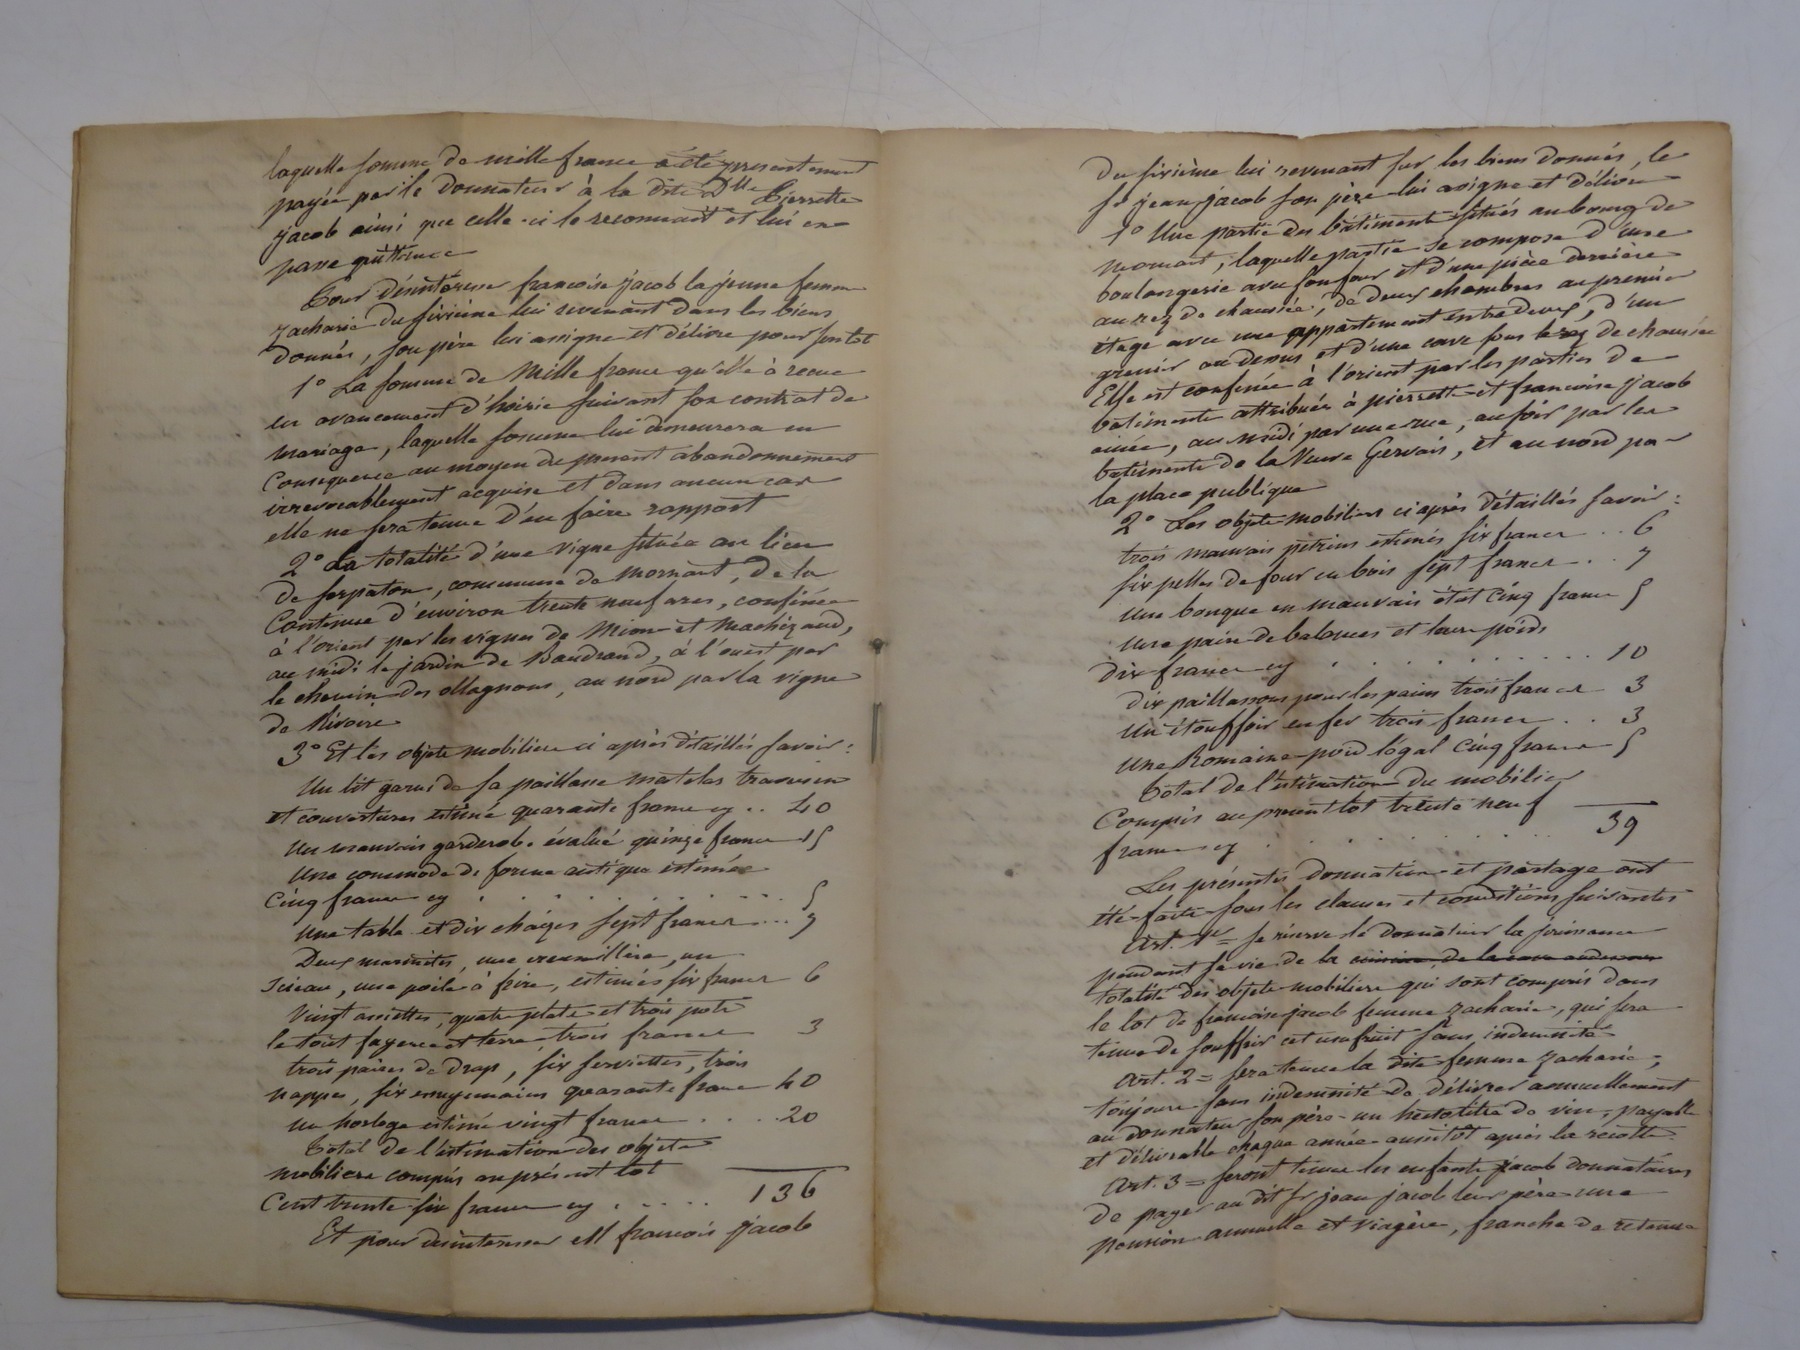 laquelle somme de mille francs a été presentement
payée par le donnateur à la dite Dlle Pierrette
jacob ainsi que celle-ci le reconnait et lui en
passe quittance
Pour désintéresser francoise jacob la jeune femme
zacharie du sixième lui revenant dans les biens
donnés, son père lui assigne et délivre pour son lot
1° La somme de mille francs qu'elle à recue
en avancement d'hoirie suivant son contrat de
mariage, laquelle somme lui demeurera en
Consequence au moyen du present abandonnement
irrevocablement acquise et dans aucun cas
elle ne sera tenue d'en faire rapport
2° La totalité d'une vigne située au lieu
de serpaton, commune de Mornant, de la
Contenue d'environ trente neuf ares, confinée
à l'orient par les vignes de Mion et Machizaud,
au midi le jardin de Baudrand, à l'ouest par
le chemin des Magnons, au nord par la vigne
de Rivoire
3° Et les objets mobiliers ci après détaillés savoir:
Un lit garni de sa paillasse matelas traversin
et couvertures estimé quarante francs cy .. 40
Un mauvais garderobe évalué quinze francs 15
Une commode de forme antique estimée
Cinq francs cy . . . . . . . . 5
Une table et dix chaizes sept francs ... 7
Deux marmites, une cremillère, un
seau, une poile à frire, estimés six francs 6
Vingt assiettes, quatre plats et trois pots
le tout fayence et terre, trois francs 3
trois paires de draps, six serviettes, trois
nappes, six essuyemains quarante francs 40
un horloge estimé vingt francs . . . . 20
Total de l'estimation des objets
mobiliers compris au présent lot
Cent trente six francs cy . . . . . 136
Et pour desinteresser M francois jacob
du sixième lui revenant sur les biens donnés, le
Sr jean jacob son père lui assigne et délivre
1° Une partie des bâtiments situés au bourg de
Mornant, laquelle partie se compose d'une
boulangerie avec son four et d'une pièce derrière
au rez de chaussée, de deux chambres au premier
étage avec une appartement entredeux, d'un
grenier au dessus et d'une cave sous le rez de chaussée
Elle est confinée à l'orient par les parties de
batiments attribuées à pierrette et francoise jacob
ainée, au midi par une rue, au soir par les
batiments de la Veuve Gervais, et au nord par
la place publique
2° Les objets mobiliers ci après détaillés savoir:
trois mauvais pétrins estimés six francs .. 6
six pelles de four en bois sept francs .. 7
Une banque en mauvais état cinq francs 5
Une paire de balances et leurs poids
dix francs cy . . . . . . . . . 10
dix paillassons pour les pains trois francs 3
Un étouffoir en fer trois francs . . 3
Une Romaine poid légal cinq francs 5
Total de l'estimation du mobilier
Compris au present lot trente neuf
francs cy . . . . . . . 39
Les présentes donnation et partage ont
été faite sous les clauses et conditions suivantes
Art. 1er = se réserve le donnateur la jouissance
pendant sa vie de la
totalité des objets mobiliers qui sont compris dans
le lot de francoise jacob femme zacharie, qui sera
tenue de souffrir cet usufruit sans indemnité
Art. 2 = sera tenue la dite femme zacharie,
toujours sans indemnité de délivrer annuellement
au donnateur son père un hectolitre de vin, payable
et délivrable chaque année aussitôt après la récolte.
Art. 3 = seront tenus les enfants jacob donnataires
de payer au dit Sr jean jacob leur père une
pension annuelle et viagère, franche de retenue